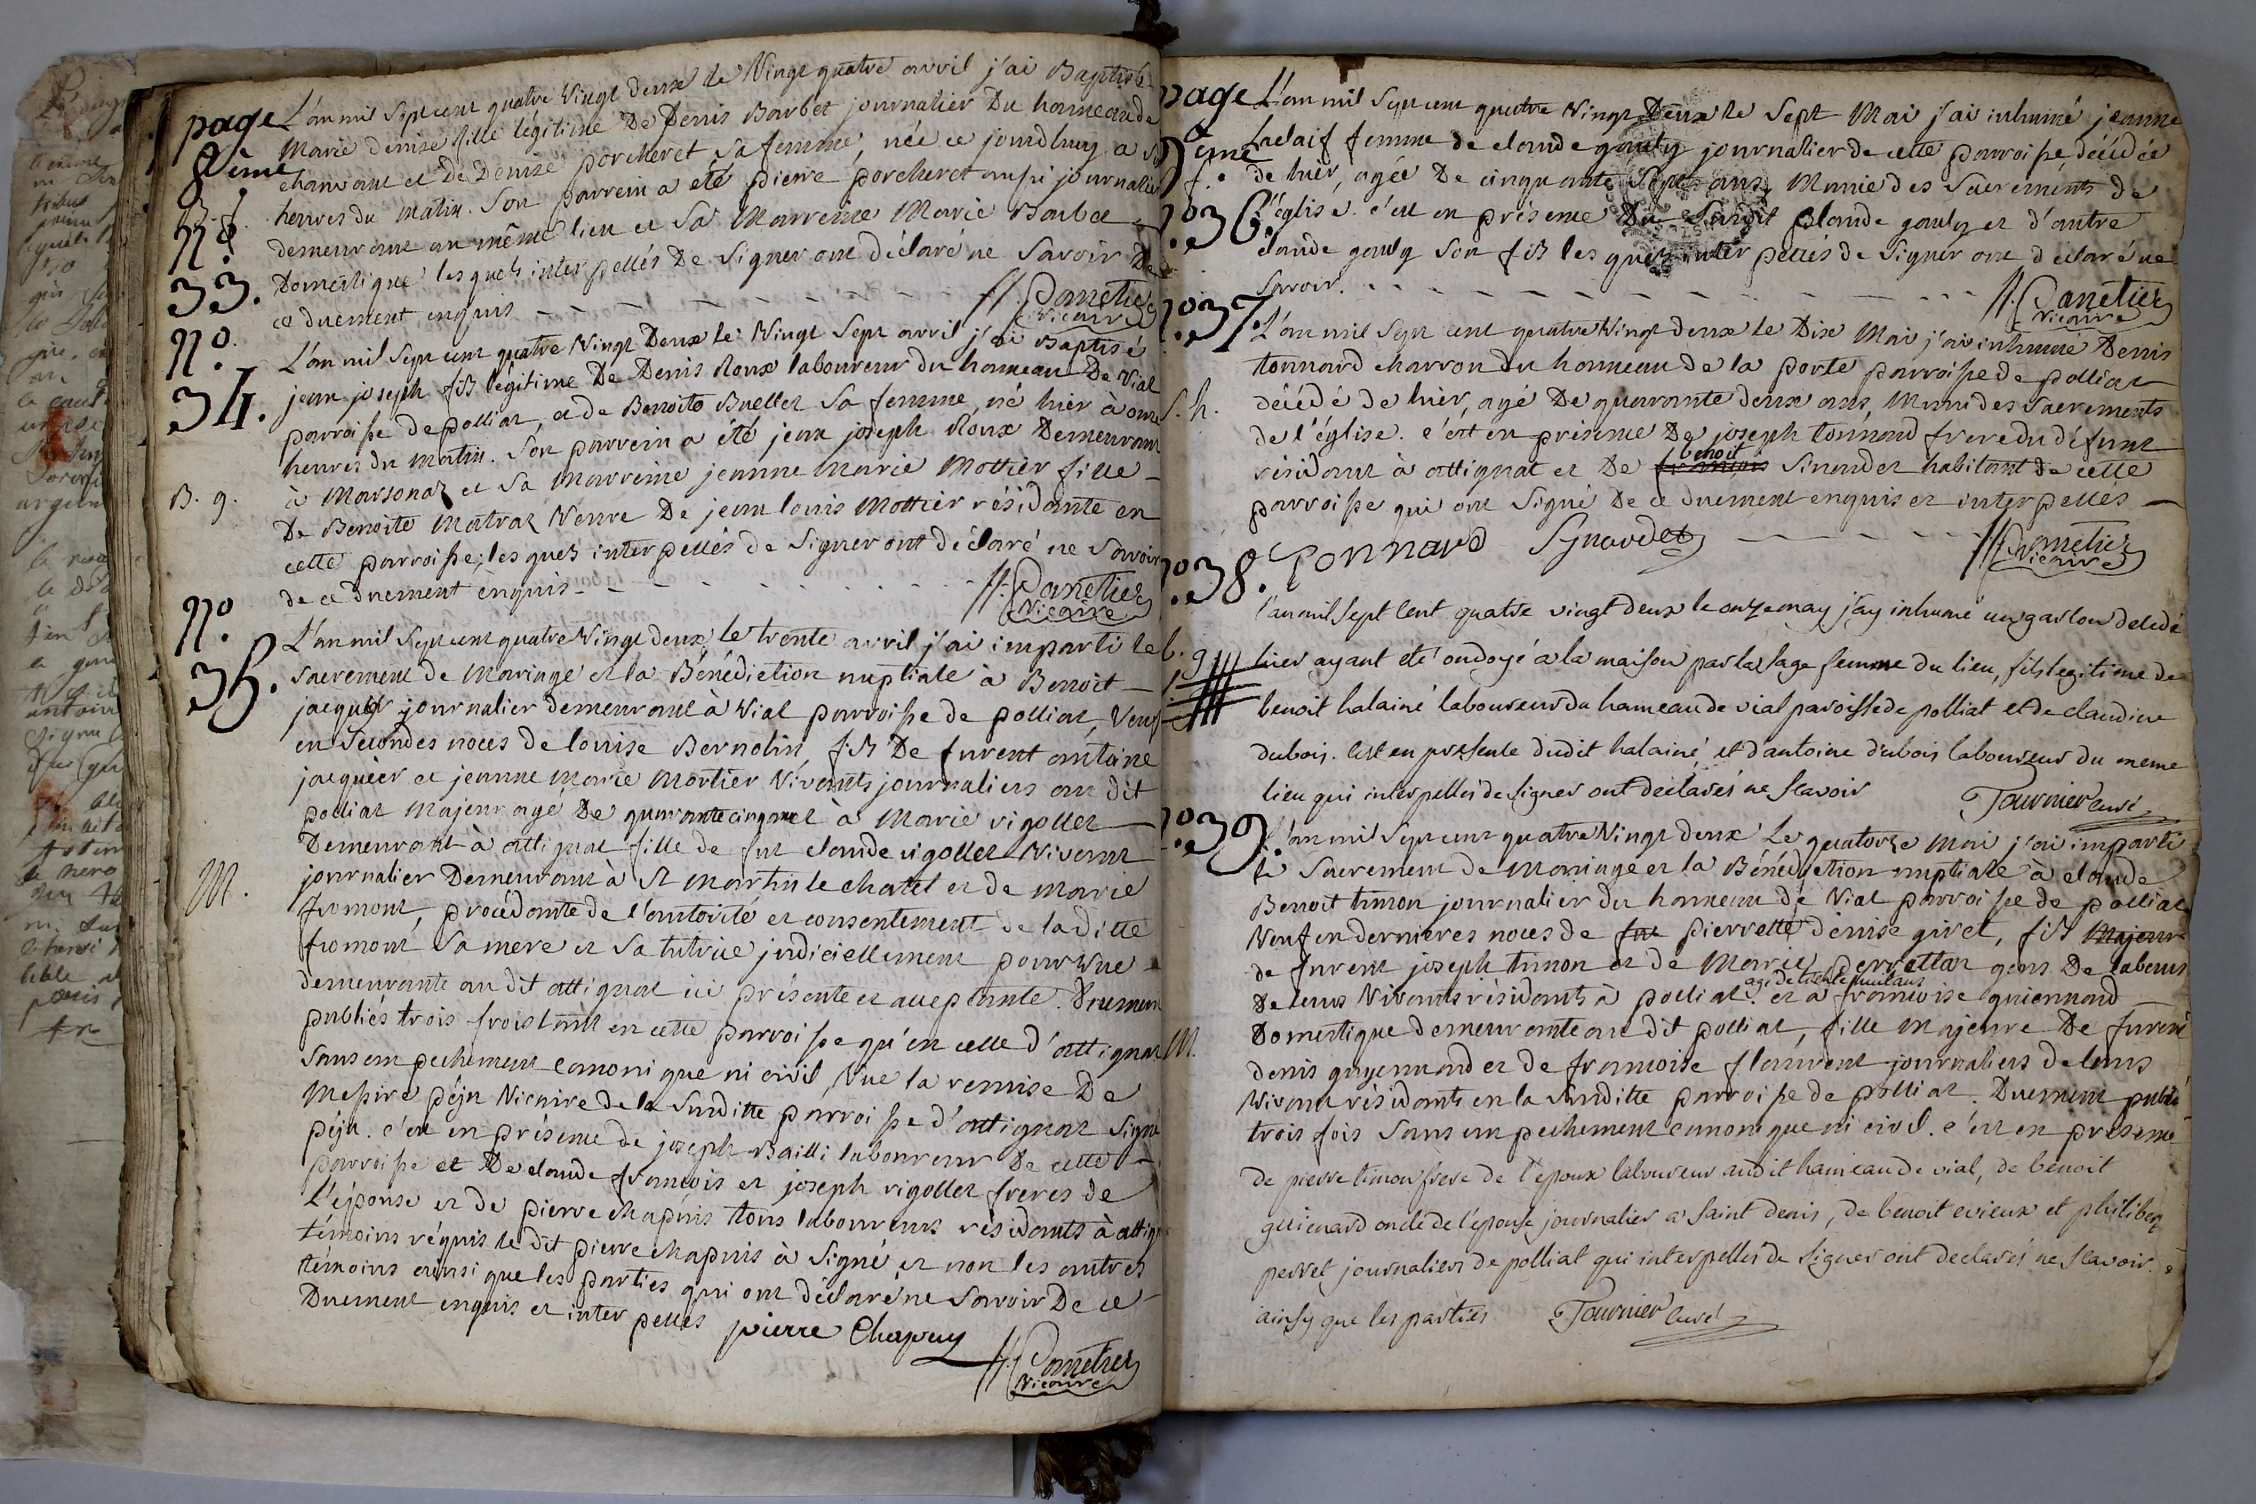 page
8ème
B. f.
n.o
33.
L'an mil sept cent quatre Vingt deux le Vingt quatre avril j'ai Baptisé
Marie denise fille légitime De Denis Barbet journalier Du hameau de
chanvant et De Denise porcheret sa femme, née ce jourdhuy a
heures du matin. Son parrein a été pierre porcheret aussi journalier
demeurant au même lieu et sa Marreine Marie Barbet
Domestique lesquels interpellés De signer ont déclaré ne savoir De
ce duement enquis
Panetier
Vicaire
n.o
34.
B. g.
L'an mil Sept cent quatre Vingt Deux le Vingt Sept avril j'ai Baptisé
jean joseph fils légitime De Denis Roux laboureur du hameau De Vial
parroisse de polliat, et de Benoite Buellet sa femme, né hier à onze
heures du matin. Son parrein a été jean joseph Roux Demeurant
à Marsonaz et sa Marreine jeanne Marie Mottier fille
De Benoite Matraz Veuve De jean louis Mottier résidante en
cette parroisse, lesquels interpellés de signer ont déclaré ne savoir
de ce duement enquis
Panetier
Vicaire
n.o
35.
M.
L'an mil Sept cent quatre Vingt deux, le trente avril j'ai imparti le
sacrement de Mariage et la Bénédiction nuptiale à Benoit
jacquier journalier demeurant à Vial parroisse de polliat, Veuf
en secondes noces de louise Bernolin, fils De furent antoine
jacquier et jeanne Marie Mortier Vivants journaliers au dit
polliat Majeur agé De quarante cinq ans et à Marie vigollet
Demeurant à attignat fille de fut claude vigollet Vivant
journalier Demeurant à St Martin le chatel et de Marie
fromont, procédante de l'autorité et consentement de la ditte
fromont sa mere et sa tutrice judiciellement pourvue
demeurante au dit attignat ici présente et acceptante. Duement
publiés trois fois tant en cette parroisse qu'en celle d'attignat
Sans empechement canonique ni civil, Vue la remise De
Messire péju Vicaire de la Susditte parroisse d'attignat Signé
péju. c'est en présence de joseph Bailli laboureur De cette
parroisse et De claude françois et joseph vigollet freres de
L'épouse et de pierre chapuis tous laboureurs résidants à
témoins réquis le dit pierre chapuis à signé et non les autres
témoins ainsi que les parties qui ont déclaré ne savoir De ce
Duement enquis et interpellés
pierre Chapuy
Panetier
Vicaire
page
9ème
36.
L'an mil Sept cent quatre Vingt Deux le Sept Mai j'ai inhumé jeanne
femme de claude gauly journalier de cette parroisse, décédée
de hier, agée De cinquante Sept ans, Munie des Sacrements de
l'église. c'est en présence Du Susdit Claude gauly et d'autre
claude gauly son fils lesquels interpellés de signer ont déclaré ne
savoir.
Panetier
Vicaire
37.
S. h.
L'an mil Sept cent quatre Vingt deux le Dix Mai j'ai inhumé Denis
tonnard charron du hameau de la porte parroisse de polliat
décédé de hier, agé De quarante deux ans, Muni des sacrements
de l'église. c'est en présence De joseph tonnard frere du défunt
résidant à attignat et De françois benoit Sinardet habitant de cette
parroisse qui ont Signé De ce duement enquis et interpellés
Tonnard Synardet
Panetier
Vicaire
38.
l'an mil sept cent quatre vingt deux le onze may j'ay inhumé un garson décédé
hier ayant été ondoyé a la maison par la sage femme du lieu, fils legitime de
benoit halainé laboureur du hameau de vial paroisse de polliat et de claudine
dubois. C'est en presence dudit halainé, et d'antoine dubois laboureur du meme
lieu qui interpellés de signer ont declarés ne scavoir
Tournier curé
39.
M.
L'an mil Sept cent quatre Vingt deux Le quatorze Mai j'ai imparti
le Sacrement de Mariage et la Bénédiction nuptiale à claude
Benoit timon journalier du hameau de Vial parroisse de polliat
Veuf en dernieres noces de fut pierrette denise givet, fils Majeur
de furent joseph timon et de Marie perrettan gens De labeur
De leurs Vivants résidants à polliat agé de trente huit ans et à françoise guiennard
Domestique demeurante au dit polliat, fille Majeure De furent
denis guyennard et de françoise flauvent journaliers de leurs
Vivant résidants en la Susditte parroisse de polliat. Duement publié
trois fois Sans empechement canonique ni civil. c'est en présence
de pierre timon frere de l'epoux laboureur audit hameau de vial, de benoit
guienard oncle de l'epouse journalier a saint denis, de benoit evieux et philibert
perret journaliers de polliat qui interpellés de signer ont declarés ne scavoir
ainsy que les parties
Tournier curé